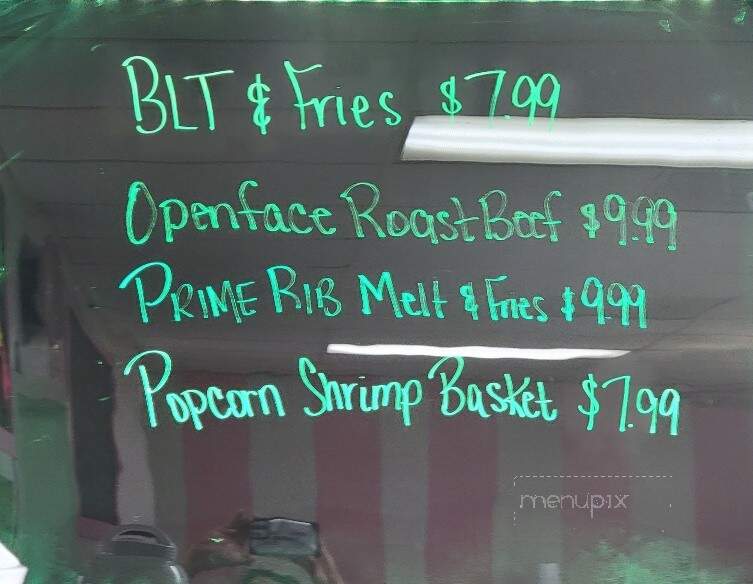 BLT & Fries $7.99
Openface Roast Beef $9.99
PRIME RIB Melt & Fries $9.99
Popcorn Shrimp Basket $7.99
menupix